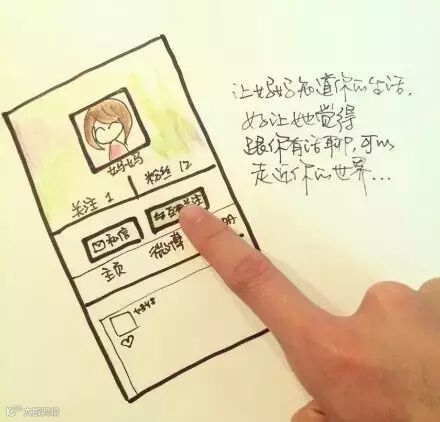 让妈妈知道你的生活,
好让她觉得
跟你有话聊,可以
走近你的世界...
妈妈
关注 1 粉丝 12
私信 互相关注
主页 微博